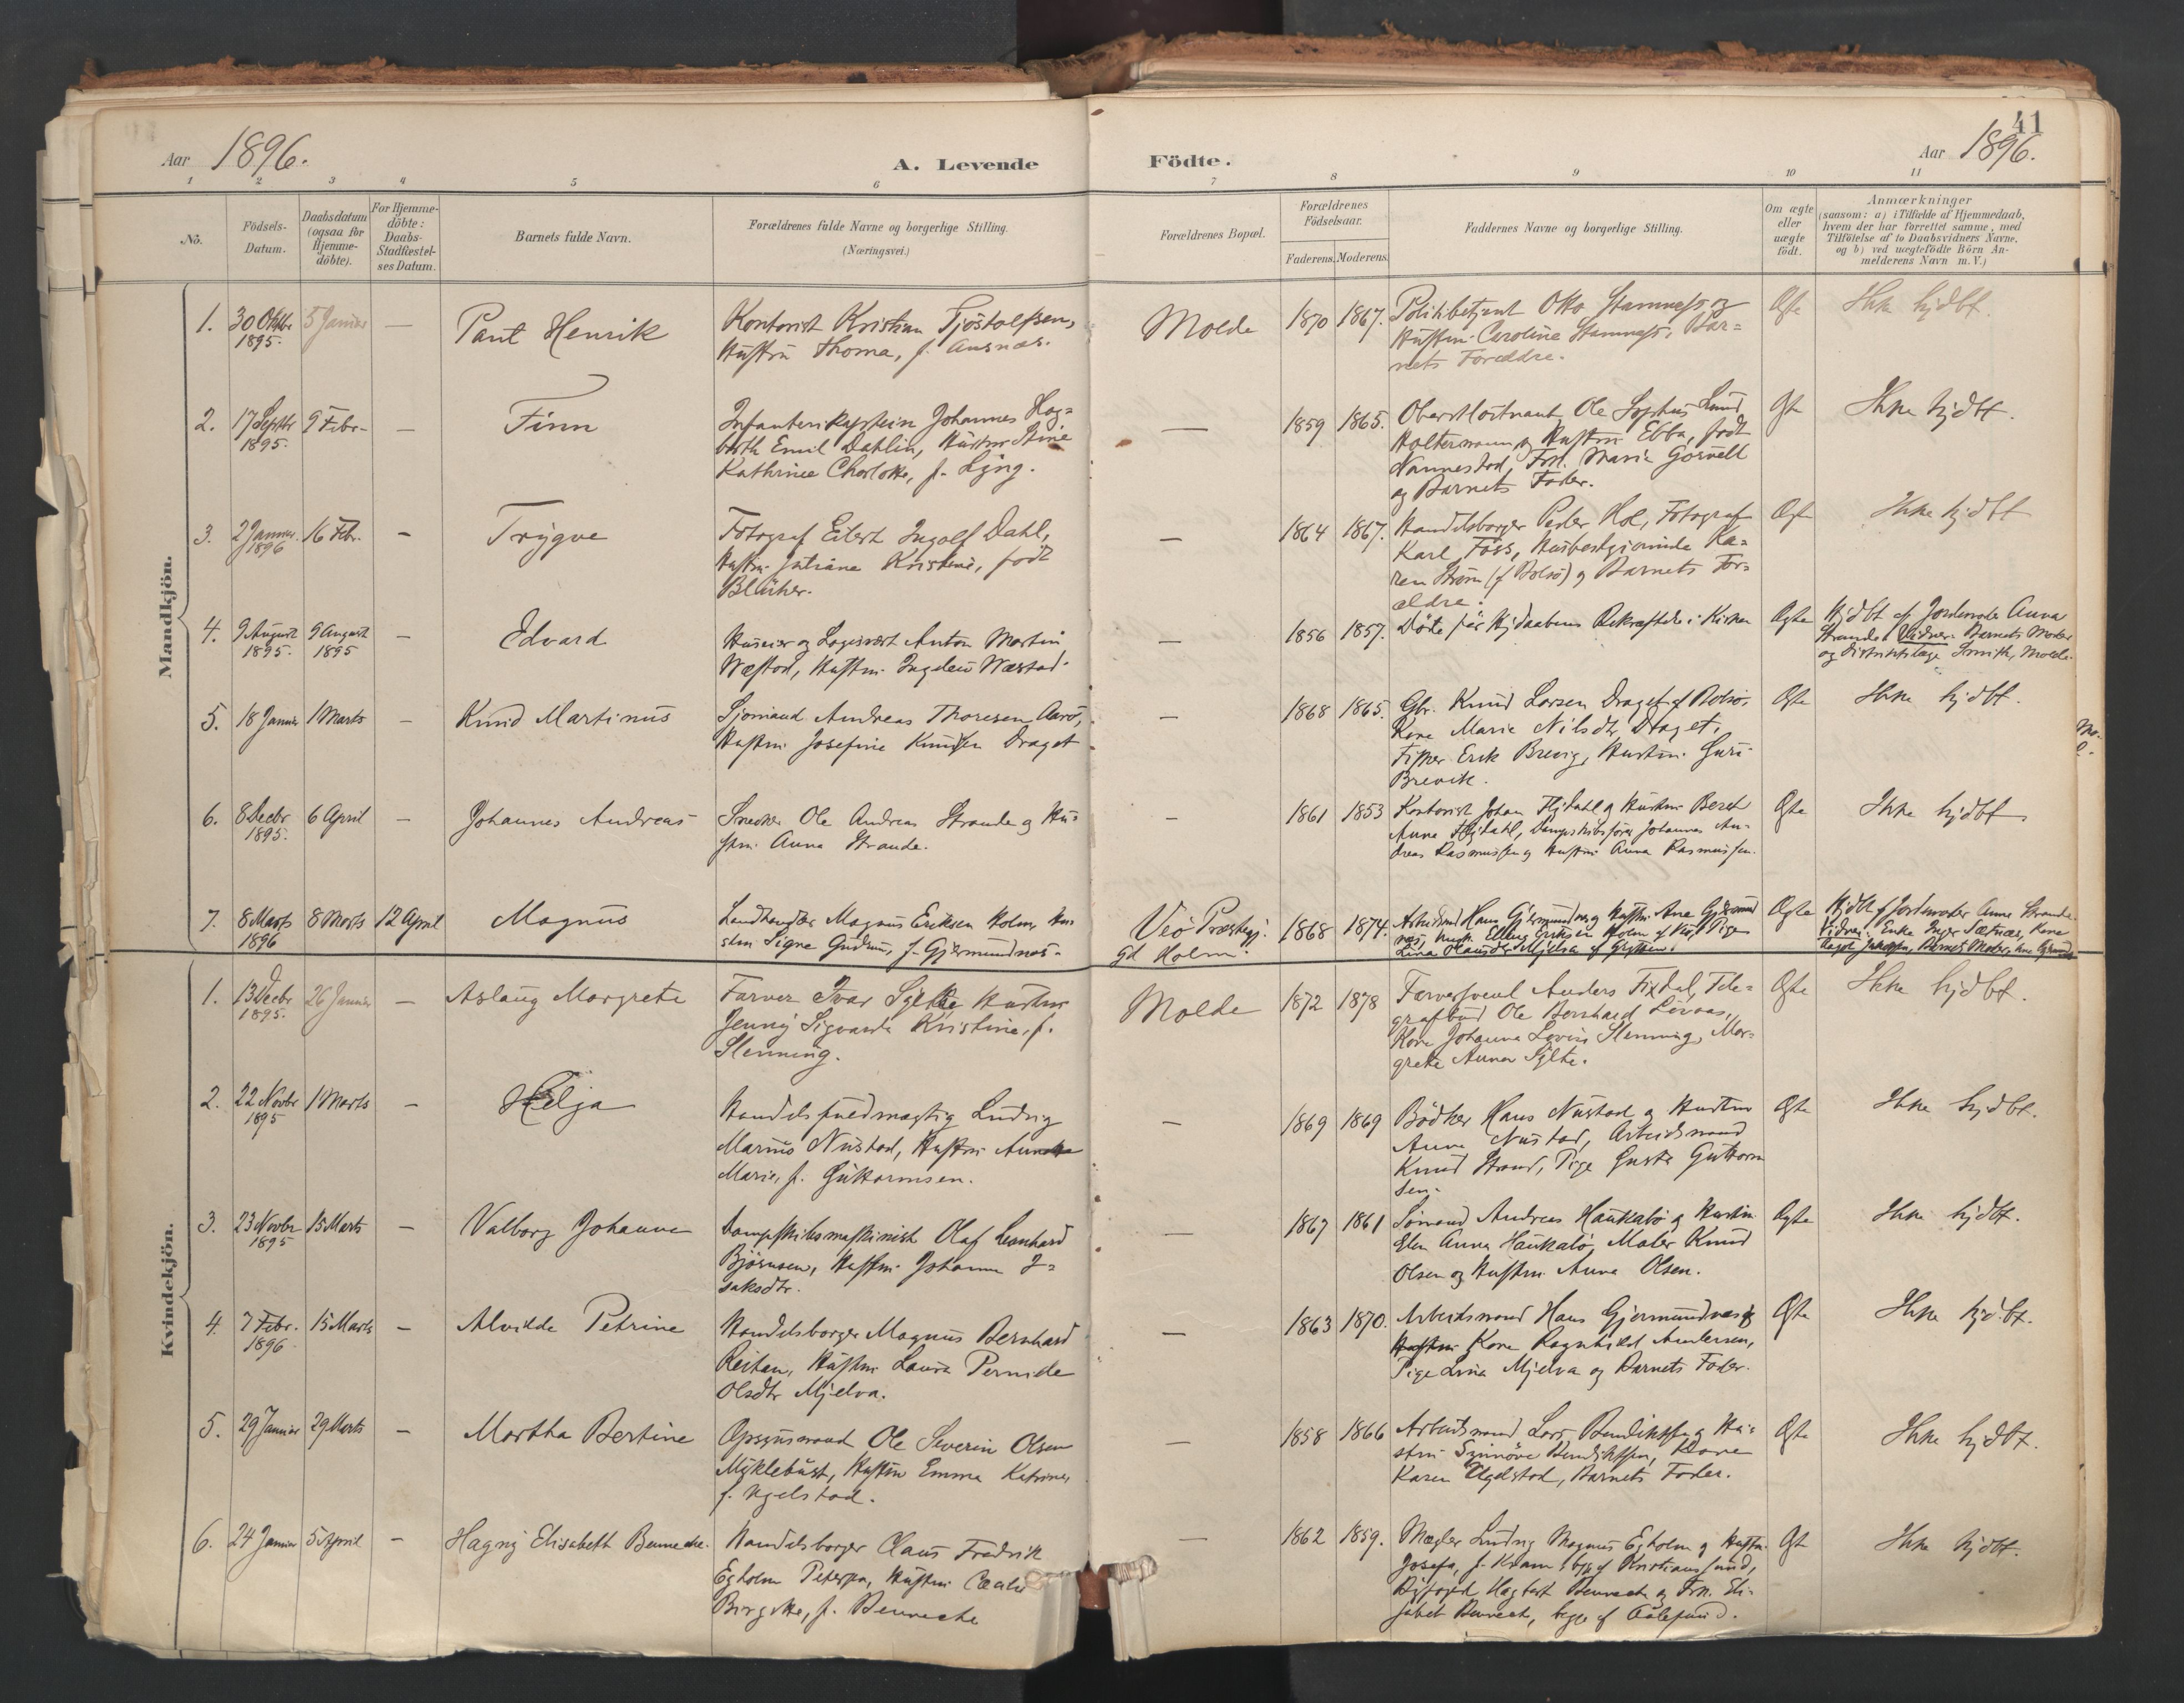 41
Aar 1896.
A. Levende
Födte.
Aar 1896.
1 2 3 4 5 6 7 8 9 10 11
No.
Födsels-
Datum.
Daabsdatum
(ogsaa for
Hjemme-
döbte).
For Hjemme-
döbte:
Daabs-
Stadfæstel-
ses Datum.
Barnets fulde Navn.
Forældrenes fulde Navne og borgerlige Stilling.
(Næringsvei.)
Forældrenes Bopæl.
Forældrenes
Födselsaar.
Faderens. Moderens.
Faddernes Navne og borgerlige Stilling.
Om ægte
eller
uægte
födt.
Anmærkninger
(saasom: a) i Tilfælde af Hjemmedaab,
hvem der har forrettet samme, med
Tilföielse af to Daabsvidners Navne,
og b) ved uægtefödte Börn An-
melderens Navn m. V.)
Mandkjön.
1. 30 Oktbr 1895. 5 Januar — Paul Henrik
Kontorist Kristian Tjøstolfsen,
Hustru Thoma, f. Ausnæs.
Molde 1870 1867.
Politibetjent Otto Stamnæss og
Hustru Caroline Stamnæss, Bar=
nets Forældre.
Ægte Ikke hjdbt.
2. 17 Septbr 1895. 9 Febr — Finn
Infanterikaptein Johannes Hag=
barth Emil Dahlin, Hustru Stine
Kathrine Charlotte, f. Lyng.
— 1859 1865.
Oberstløitnant Ole Sophus Lund
Holtermann og Hustru Ebba, født
Nannestad, Frk. Maria Gørvell
og Barnets Fader.
Ægte Ikke hjdbt.
3. 2 Januar 1896 16 Febr. — Trygve
Fotograf Eilert Ingolf Dahl,
Hustru Juliane Kristine, født
Blücher.
— 1864 1867.
Handelsborger Peder Hol, Fotograf
Karl Foss, Husbestyrerinde Ka=
ren Strøm (f Bolsø) og Barnets For=
ældre.
Ægte Ikke hjdbt
4. 9 August 1895. 9 August 1895 — Edvard
Huseier og Logivært Anton Martin
Wæstad, Hustru Ingeleiv Wæstad.
— 1856 1857.
Døde før Hjdaabens Bekræftelse i Kirken
Ægte
Hjdbt af Jordmoder Anna
Strande. Vidner: Barnets Moder
og Distriktslæge Smith, Molde.
5. 18 Januar 1 Marts — Knud Martinus
Sjømand Andreas Thoresen Aarø,
Hustru Josefine Knudsen Draget
— 1868 1865.
Gbr. Knud Larsen Draget af Bolsø,
Kone Marie Nilsdtr Draget,
Fisker Erik Brevig, Hustru Guri
Brevik.
Ægte Ikke hjdbt.
6. 8 Decbr 1895. 6 April — Johannes Andreas
Snedker Ole Andreas Strande og Hu=
stru Anna Strande.
— 1861 1853
Kontorist Johan Flydahl og Hustru Beret
Anna Flydahl, Dampskibsfører Johannes An-
dreas Rasmussen og Hustru Anna Rasmussen.
Ægte Ikke hjdbt
7. 8 Marts 1896 8 Marts 12 April Magnus
Landhandler Magnus Eriksen Holm, Hu-
stru Signe Gudrun, f. Gjermundnes.
Veø Præstegj.
Gd Holm. 1868 1874.
Arbeidsmd Hans Gjermundnes og Hustru Ane Gjermund
nes, Ungk. Elling Eriksen Holm af Veø, Pige
Ægte
Hjdbt af Jordmoder Anna Strande.
Vidner: Enke Inger Sætnæs, Kone
Kvindekjön.
1. 13 Decbr 1895. 26 Januar — Aslaug Margrete
Farver Ivar Sylte Hustru
Jenny Sigvarda Kristine, f.
Slenning.
Molde 1872 1878
Farversvend Anders Fixdal, Tele=
grafbud Ole Bernhard Løvaas,
Kone Johanna Lovise Slenning, Mar=
grete Anna Sylte.
Ægte Ikke hjdbt.
2. 22 Novbr 1895 1 Marts — Helga
Handelsfuldmægtig Ludvig
Marius Nustad, Hustru
Marie, f. Guttormsen.
— 1869 1869
Bødker Hans Nustad og Hustru
Anna Nustad, Arbeidsmand
Knud Strand, Pige Gusta Guttorm
sen.
Ægte Ikke hjdbt.
3. 23 Novbr 1895 15 Marts — Valborg Johanne
Dampskibsmaskinist Olaf Leonhard
Bjørnsen, Hustru Johanne I=
saksdtr.
— 1867 1861
Sømand Andreas Haukabø og Hustru
Elen Anna Haukabø, Maler Knud
Olsen og Hustru Anna Olsen.
Ægte Ikke hjdbt.
4. 7 Febr. 1896 15 Marts — Alvilde Petrine
Handelsborger Magnus Bernhard
Reitan, Hustru Laura Pernille
Olsdtr Mjelva.
— 1863 1870.
Arbeidsmand Hans Gjermundnes og
Hustru Kone Ragnhild Andersen,
Pige Lina Mjelva og Barnets Fader.
Ægte Ikke hjdbt.
5. 29 Januar 29 Marts — Martha Bertine
Opsynsmand Ole Severin Olsen
Myklebust, Hustru Emma Katrine,
f. Ugelstad.
— 1858 1866
Arbeidsmand Lars Bendiktsen og Hu=
stru Synnøve Bendiktsen, Kone
Karen Ugelstad, Barnets Fader.
Ægte Ikke hjdbt.
6. 24 Januar 5 April — Hagny Elisabeth Benneche.
Handelsborger Claus Fredrik
Egholm Petersen, Hustru
Birgitte, f. Benneche
— 1862 1859.
Mægler Ludvig Magnus Egholm og Hustru
Josefa, f. Knam begge af Kristianssund,
Hagbart Benneche og Frk. Eli-
sabet Benneche, begge af Aalesund.
Ægte Ikke hjdbt.